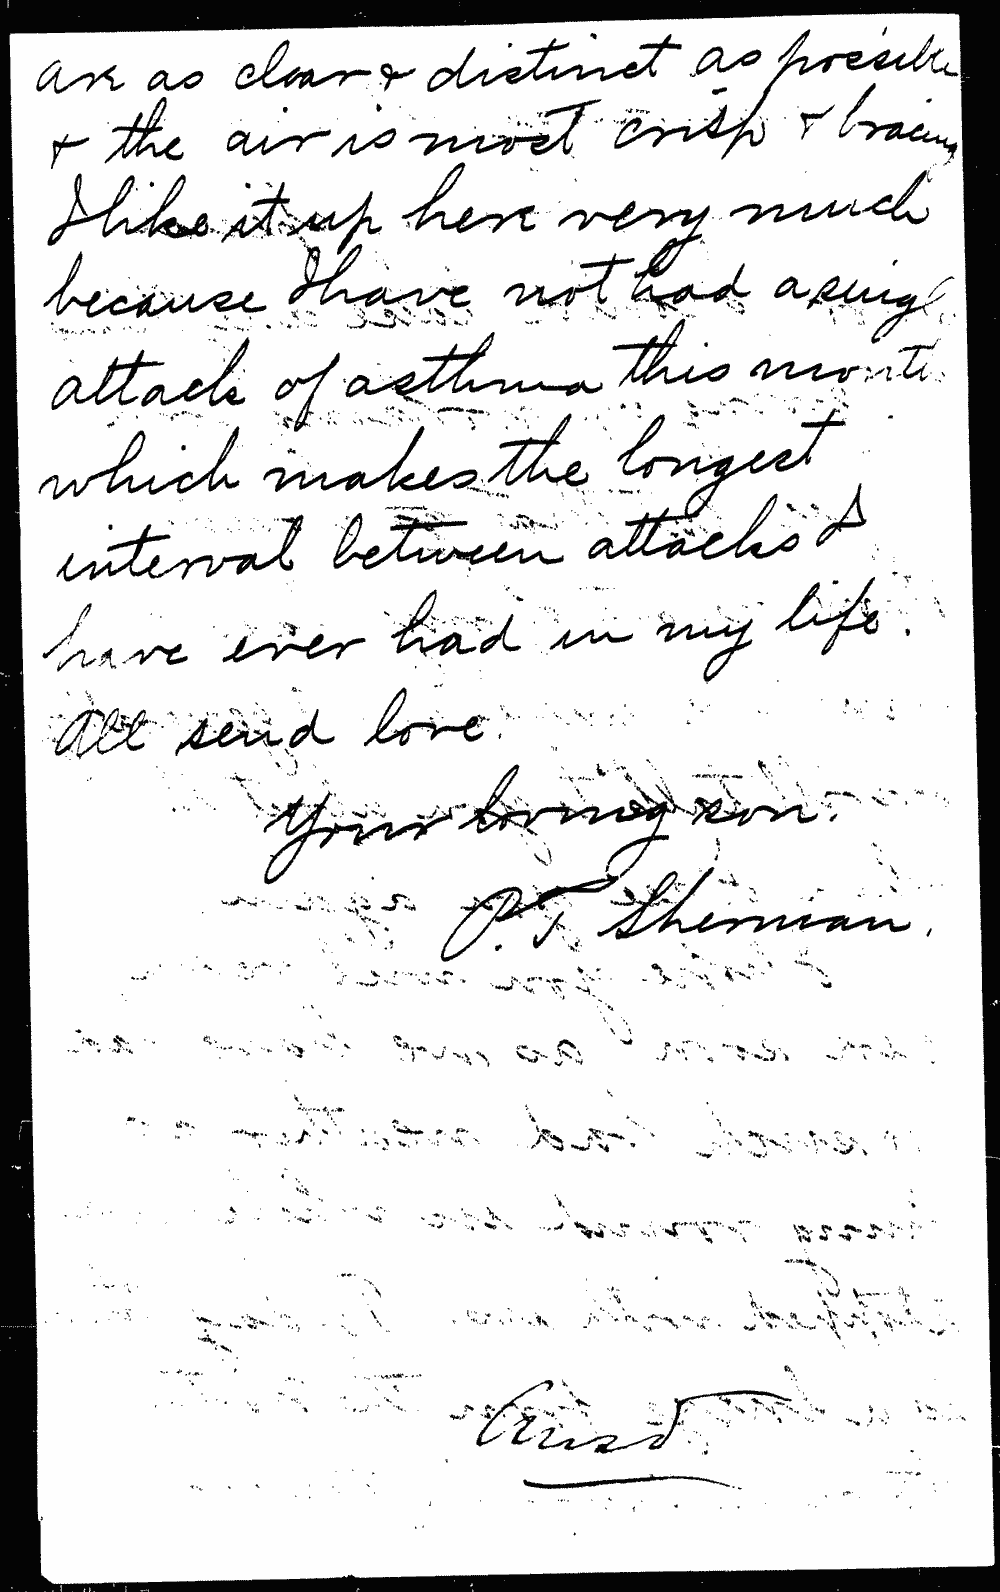 are as clear & distinct as possible
& the air is most crisp & bracing
I like it up here very much
because I have not had a singl
attack of asthma this month
which makes the longest
interval between attacks I
have ever had in my life.
All send love.
Your loving son.
P.T. Sherman.
Ansd